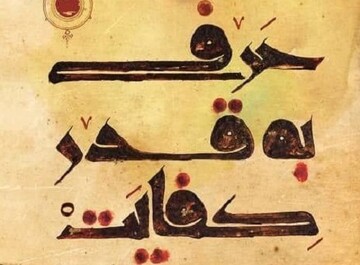 حرف
به قدر
کفایت